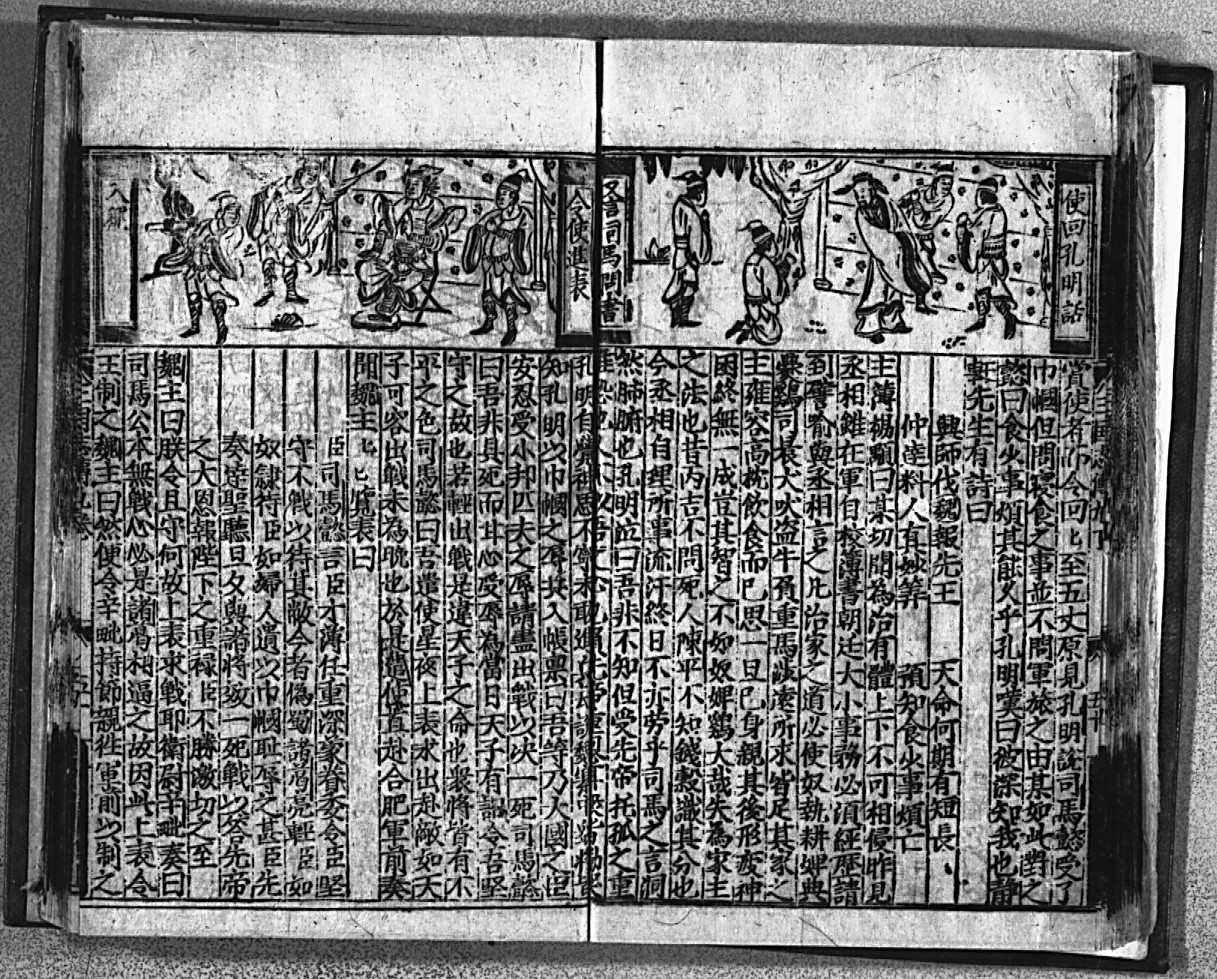 使回孔明話
賞使者令回〻至五丈原見孔明說司馬懿受了
巾幗但問寢食之事並不問軍旅之由某如此對之
懿曰食少事煩其能久乎孔明嘆曰彼深知我也靜
軒先生有詩曰
興師伐魏報先王 天命何期有短長
仲達料人有妙筭 預知食少事煩亡
主簿楊顒曰某切聞為治有體上下不可相侵昨見
丞相雖在軍自校簿書朝廷大小事務必須經歷請
到譬喻與丞相言之凡治家之道必使奴執耕婢典
爨鷄司晨犬吠盗牛負重馬涉遠所求皆足其家之
主雍容高枕飲食而已思一旦己身親其後形疲神
困終無一成豈其智之不如奴婢鷄犬哉失為家主
之法也昔丙吉不問死人陳平不知錢穀識其分也
今丞相自理所事流汗終日不亦劳乎司馬之言洞
然肺腑也孔明泣曰吾非不知但受先帝托孤之重
令使進表
入朝
孔明自覺神思不寧
知孔明以巾幗之辱共入帳禀曰吾等乃大國之臣
安忍受小邦匹夫之辱請盡出戰以决一死司馬懿
曰吾非具死而甘心受辱為當日天子有詔令吾堅
守之故也若輕出戰是違天子之命也衆將皆有不
平之色司馬懿曰吾遣使星夜上表求出赴敵如天
子可容出戰未為晚也於是龍使直赴合肥軍前奏
聞魏主〻〻覽表曰
臣司馬懿言臣才薄任重深蒙眷委令臣堅
守不戰以待其敝今者偽蜀諸葛亮輕臣如
奴隸待臣如婦人遺以巾幗耻辱之甚臣先
奏達聖聽旦夕與諸將效一死戰以答先帝
之大恩報陛下之重禄臣不勝激切之至
魏主曰朕令且守何故上表求戰耶衛尉辛毗奏曰
司馬公本無戰心必是諸葛相逼之故因此上表令
王制之魏主曰然便令辛毗持節親徃軍前以制之